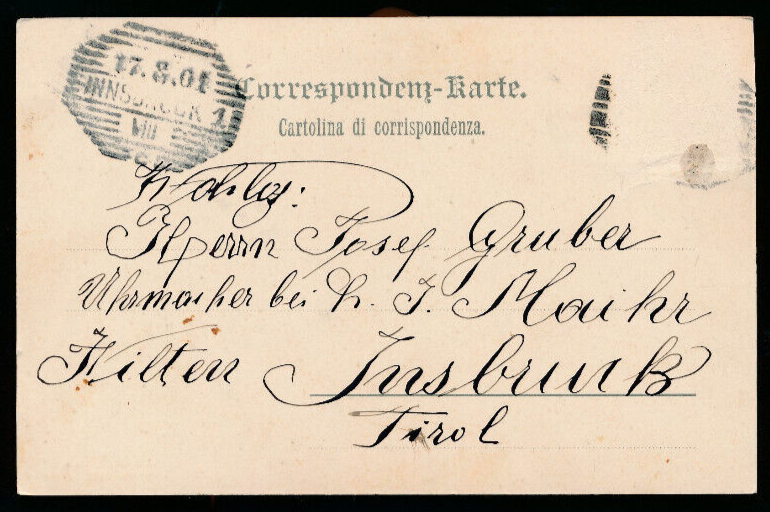 17.8.01
INNSBRUCK 1
VIII
Correspondenz-Karte.
Cartolina di corrispondenza.
Wohlg:
Herrn Josef Gruber
Uhrmacher bei H. J. Maihr
Wilten Insbruck
Tirol